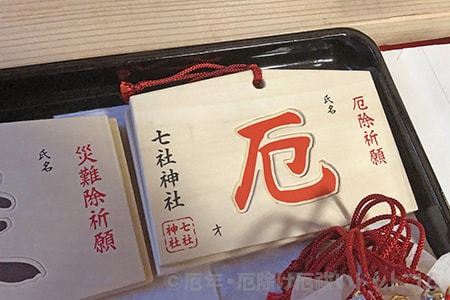 厄除祈願
氏名
厄
才
七社神社
七社
神社
災難除祈願
氏名
©厄年・厄除け厄祓い